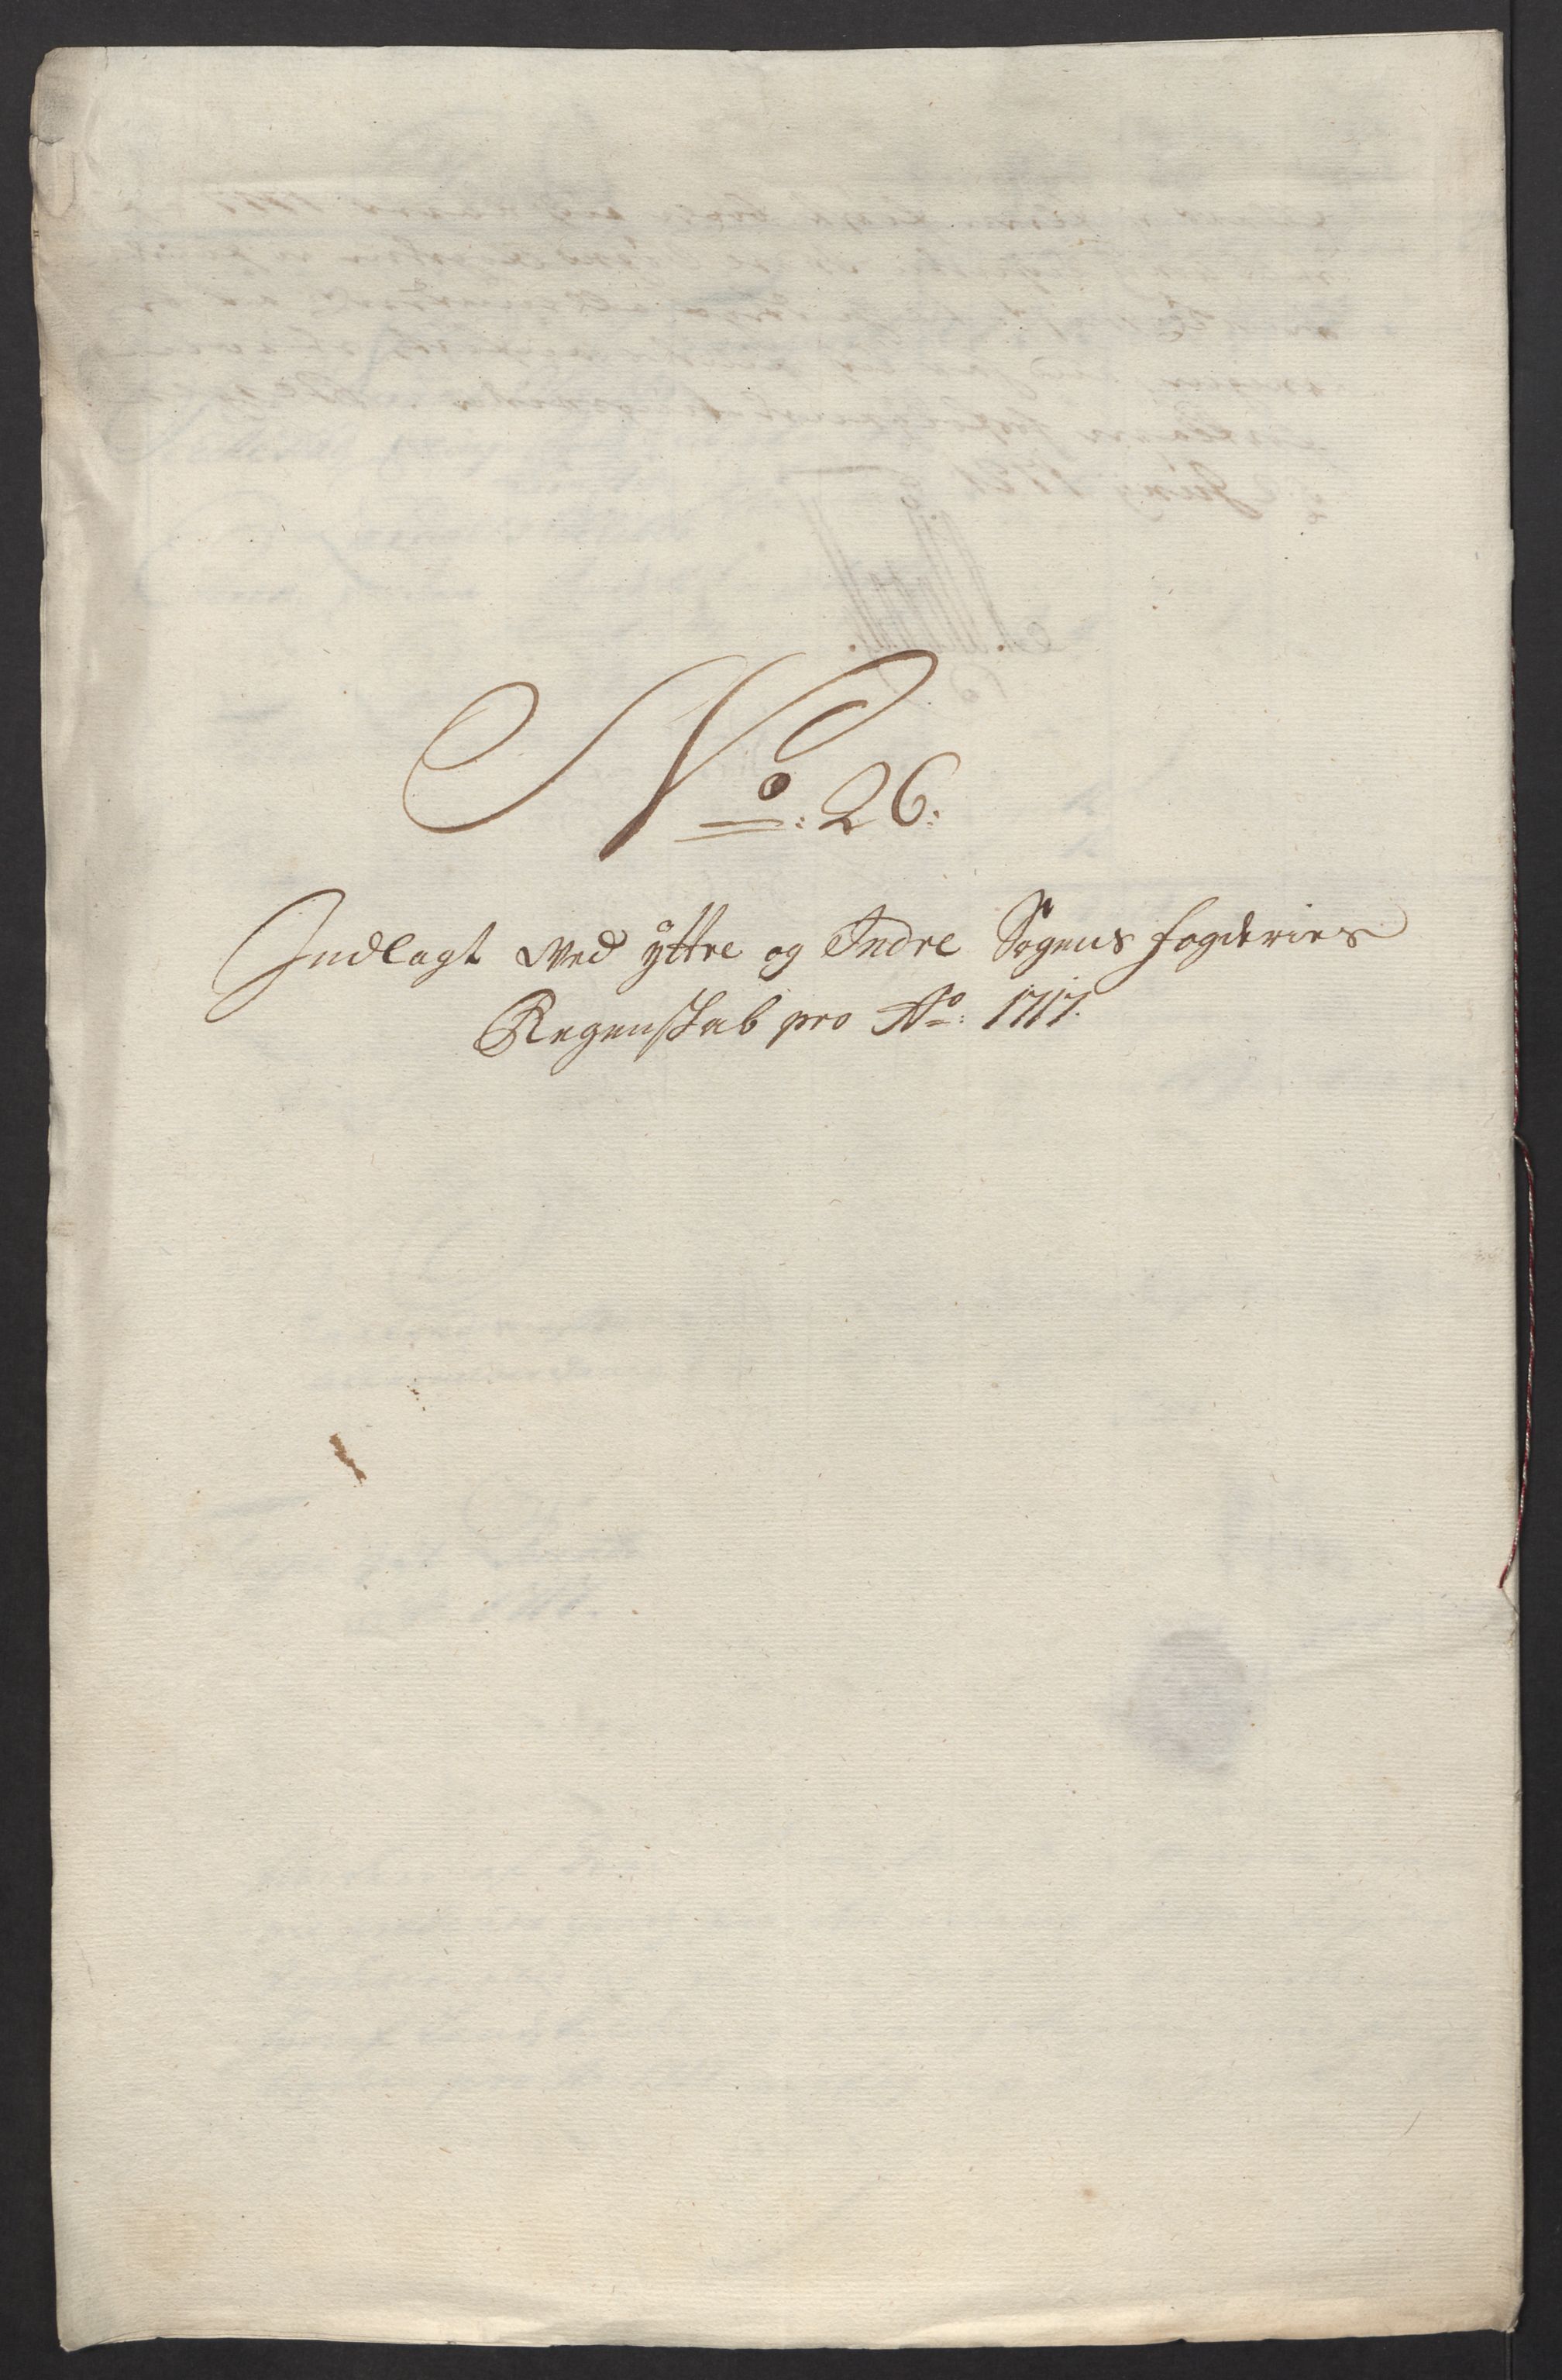 No: 26.
Indlagt Wed Ÿttre og Indre Sogens fogderies
Regenskab pro Ao: 1717.